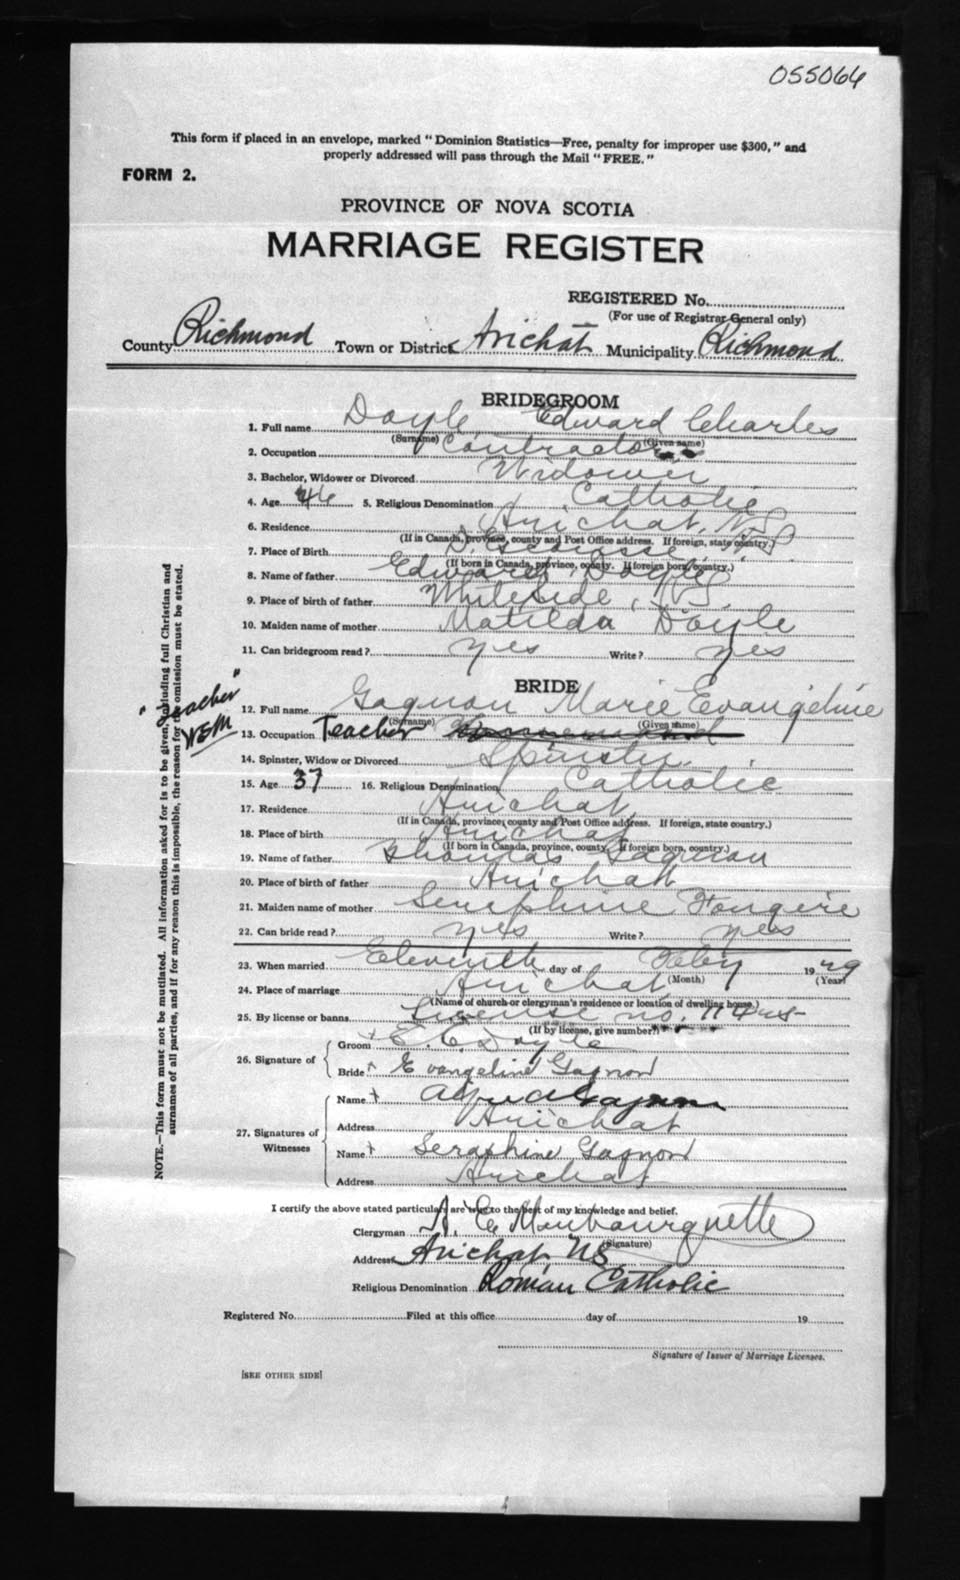 055064
This form if placed in an envelope, marked "Dominion Statistics—Free, penalty for improper use $300," and
properly addressed will pass through the Mail "FREE."
FORM 2.
PROVINCE OF NOVA SCOTIA
MARRIAGE REGISTER
REGISTERED No.
(For use of Registrar General only)
County Richmond Town or District Arichat Municipality Richmond
BRIDEGROOM
1. Full name Doyle Edward Charles
(Surname) (Given name)
2. Occupation Contractor
3. Bachelor, Widower or Divorced Widower
4. Age 46 5. Religious Denomination Catholic
6. Residence Arichat, NS
(If in Canada, province, county and Post Office address. If foreign, state country.)
7. Place of Birth D'Escousse NS
(If born in Canada, province, county. If foreign born, country.)
8. Name of father Edward Doyle
9. Place of birth of father Whiteside, NS
10. Maiden name of mother Matilda Doyle
11. Can bridegroom read? yes Write? yes
BRIDE
"Teacher"
WBM
12. Full name Gagnon Marie Evangeline
(Surname) (Given name)
13. Occupation Teacher
14. Spinster, Widow or Divorced Spinster
15. Age 37 16. Religious Denomination Catholic
17. Residence Arichat
(If in Canada, province, county and Post Office address. If foreign, state country.)
18. Place of birth Arichat
(If born in Canada, province, county. If foreign born, country.)
19. Name of father Thomas Gagnon
20. Place of birth of father Arichat
21. Maiden name of mother Seraphine Fougere
22. Can bride read? yes Write? yes
23. When married Eleventh day of Feby 1949
(Month) (Year)
24. Place of marriage Arichat
(Name of church or clergyman's residence or location of dwelling house.)
25. By license or banns License no.
(If by license, give number)
26. Signature of
Groom + E. C. Doyle
Bride + Evangeline Gagnon
27. Signatures of Witnesses
Name + Gagnon
Address Arichat
Name + Seraphine Gagnon
Address Arichat
I certify the above stated particulars are true to the best of my knowledge and belief.
Clergyman A. E. Monbourquette
(Signature)
Address Arichat NS
Religious Denomination Roman Catholic
Registered No. Filed at this office day of 19
Signature of Issuer of Marriage Licenses.
[SEE OTHER SIDE]
NOTE.—This form must not be mutilated. All information asked for is to be given, including full Christian and
surnames of all parties, and if for any reason this is impossible, the reason for the omission must be stated.